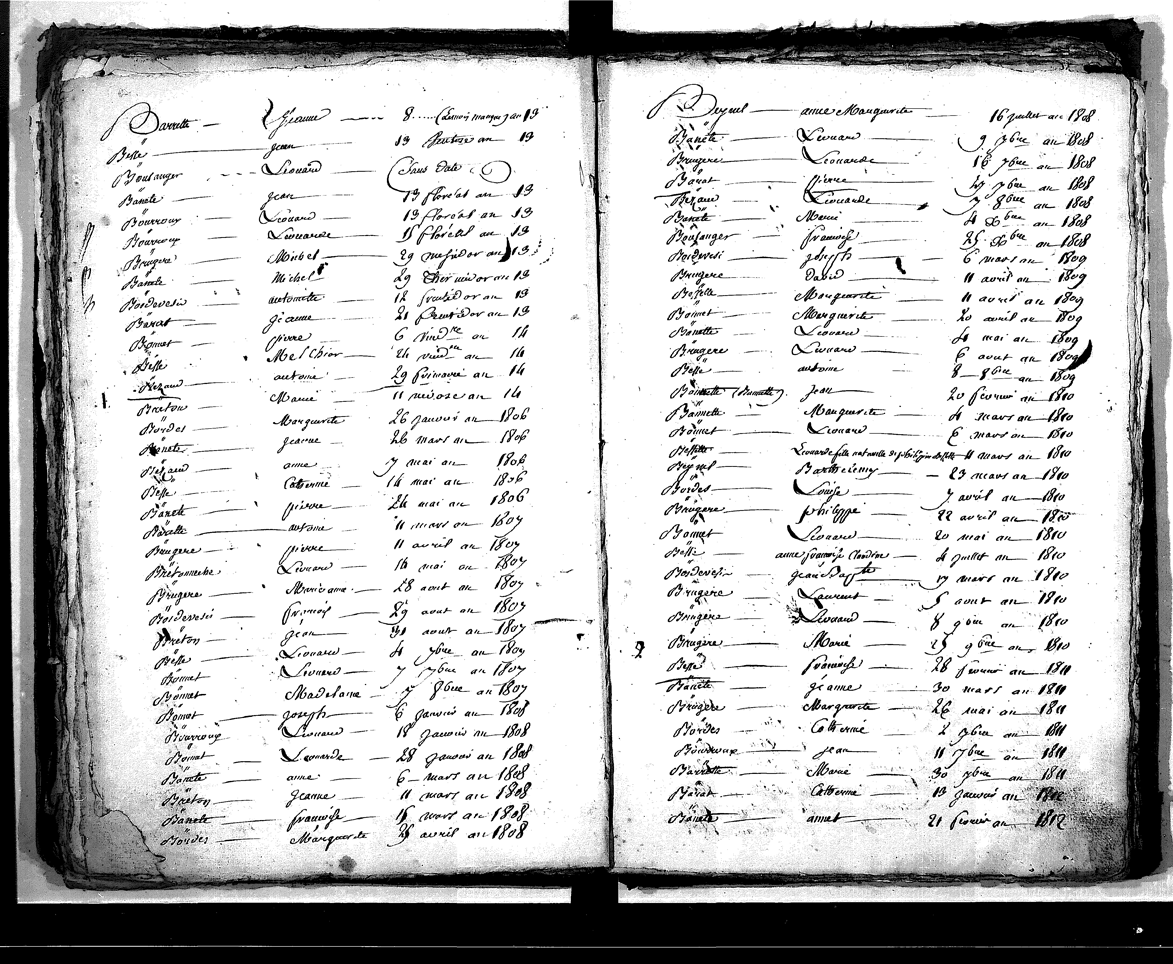 Barrette Jeanne 8 ..... (Le mois manque) an 13
Besse jean 13 Pluviose an 13
Boulanger Léonard (Sans date)
Banete jean 13 floréal an 13
Bourroux Léonard 13 floréal an 13
Bourroux Léonarde 15 floréal an 13
Brugere Michel 29 messidor an 13
Banete Michel 29 thermidor an 13
Boisdevesin antoinette 12 fructidor an 13
Barat jeanne 21 fructidor an 13
Bonnet pierre 6 vind.re an 14
Besse Melchior 26 vind.re an 14
Bezaud antoine 29 frimaire an 14
Breton Marie 11 nivose an 14
Bordes Marguerite 26 janvier an 1806
Banete jeanne 26 mars an 1806
Bezaud anne 7 mai an 1806
Besse Catherine 14 mai an 1806
Banete pierre 24 mai an 1806
Barette antoine 11 mars an 1807
Brugere pierre 11 avril an 1807
Bretonneche Léonard 16 mai an 1807
Brugere Marie anne 28 aout an 1807
Boisdevesin françois 29 aout an 1807
Breton jean 31 aout an 1807
Besse Léonard 4 7bre an 1807
Bonnet Léonard 7 7bre an 1807
Bonnet Madelaine 7 8bre an 1807
Bonnet joseph 6 janvier an 1808
Bourroux Léonard 18 janvier an 1808
Bonnet Léonarde 28 janvier an 1808
Banete anne 6 mars an 1808
Breton jeanne 11 mars an 1808
Banete françoise 15 mars an 1808
Bordes Marguerite 25 avril an 1808
Beynel anne Marguerite 16 juillet an 1808
Banete Léonard 9 7bre an 1808
Brugere Léonarde 16 7bre an 1808
Barat pierre 27 7bre an 1808
Bezaud Léonarde 7 8bre an 1808
Banete Marie 4 Xbre an 1808
Boulanger françoise 25 Xbre an 1808
Boisdevesin joseph 6 mars an 1809
Brugere david 11 avril an 1809
Bessette Marguerite 11 avril an 1809
Bonnet Marguerite 20 avril an 1809
Banette Léonard 4 mai an 1809
Brugere Léonard 6 aout an 1809
Besse antoine 8 8bre an 1809
Bannette (Bannette) Jean 20 fevrier an 1810
Bannette Marguerite 4 mars an 1810
Bonnet Léonard 6 mars an 1810
Bessette Léonarde fille naturelle de 11 mars an 1810
Beynel Barthelemy 23 mars an 1810
Bordes Louise 7 avril an 1810
Brugere philippe 22 avril an 1810
Bonnet Léonard 20 mai an 1810
Besse anne françoise Claudine 4 juillet an 1810
Boisdevesin jean Bapte 17 mars an 1810
Brugere Laurent 5 aout an 1810
Brugere Léonard 8 9bre an 1810
Brugere Marie 25 9bre an 1810
Besse françoise 28 fevrier an 1811
Banete jeanne 30 mars an 1811
Brugere Marguerite 26 mai an 1811
Bordes Catherine 2 7bre an 1811
Bourroux jean 11 7bre an 1811
Barrette Marie 30 7bre an 1811
Barat Catherine 13 janvier an 1812
Banete annet 21 fevrier an 1812